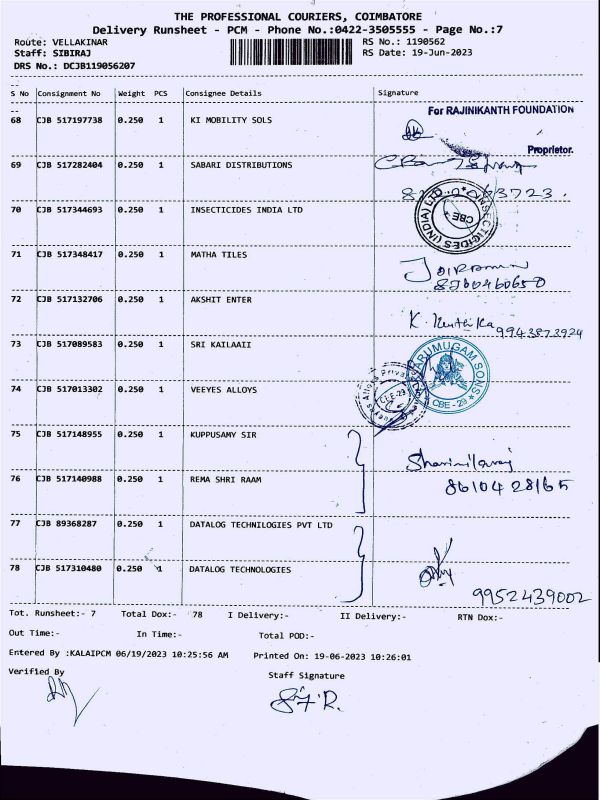 THE PROFESSIONAL COURIERS, COIMBATORE
Delivery Runsheet - PCM - Phone No.:0422-3505555 - Page No.:7
Route: VELLAKINAR RS No.: 1190562
Staff: SIBIRAJ RS Date: 19-Jun-2023
DRS No.: DCJB119056207
S No Consignment No Weight PCS Consignee Details Signature
For RAJINIKANTH FOUNDATION
68 CJB 517197738 0.250 1 KI MOBILITY SOLS
Proprietor.
69 CJB 517282404 0.250 1 SABARI DISTRIBUTIONS
70 CJB 517344693 0.250 1 INSECTICIDES INDIA LTD
INSECTICIDES (INDIA) LTD CBE
71 CJB 517348417 0.250 1 MATHA TILES
Jairaman
72 CJB 517132706 0.250 1 AKSHIT ENTER
K. Keerthika 9943873924
73 CJB 517089583 0.250 1 SRI KAILAAII
ARUMUGAM SONS CBE - 29
74 CJB 517013302 0.250 1 VEEYES ALLOYS
Veeyes Alloys Private CBE-29
75 CJB 517148955 0.250 1 KUPPUSAMY SIR
76 CJB 517140988 0.250 1 REMA SHRI RAAM
8610428165
77 CJB 89368287 0.250 1 DATALOG TECHNILOGIES PVT LTD
78 CJB 517310480 0.250 1 DATALOG TECHNOLOGIES
9952439002
Tot. Runsheet:- 7 Total Dox:- 78 I Delivery:- II Delivery:- RTN Dox:-
Out Time:- In Time:- Total POD:-
Entered By :KALAIPCM 06/19/2023 10:25:56 AM Printed On: 19-06-2023 10:26:01
Verified By Staff Signature